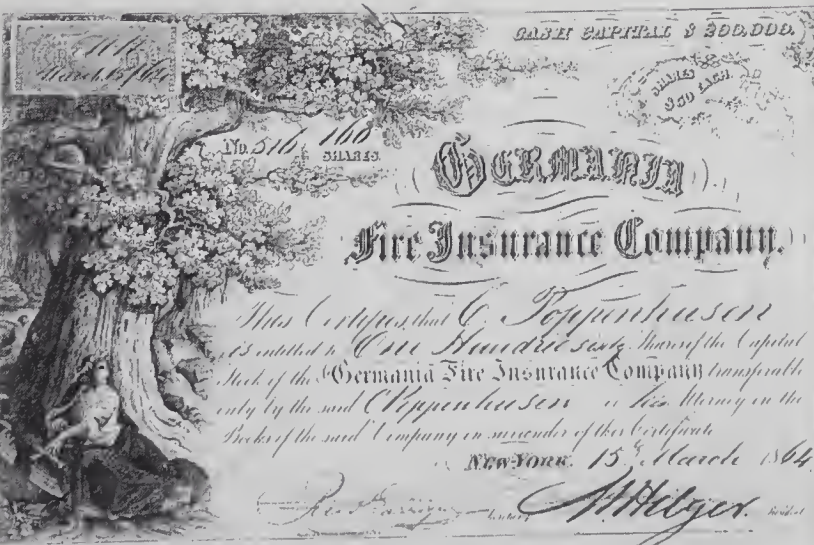 CASH CAPITAL $ 200,000.
SHARES
$50 EACH.
March 15/64
No. 516 160
SHARES.
GERMANIA
Fire Insurance Company.
This Certifies, that C. Poppenhusen
is entitled to One Hundred sixty Shares of the Capital
Stock of the Germania Fire Insurance Company transferable
only by the said C Poppenhusen or his Attorney in the
Books of the said Company on surrender of this Certificate
NEW-YORK. 15th March 1864